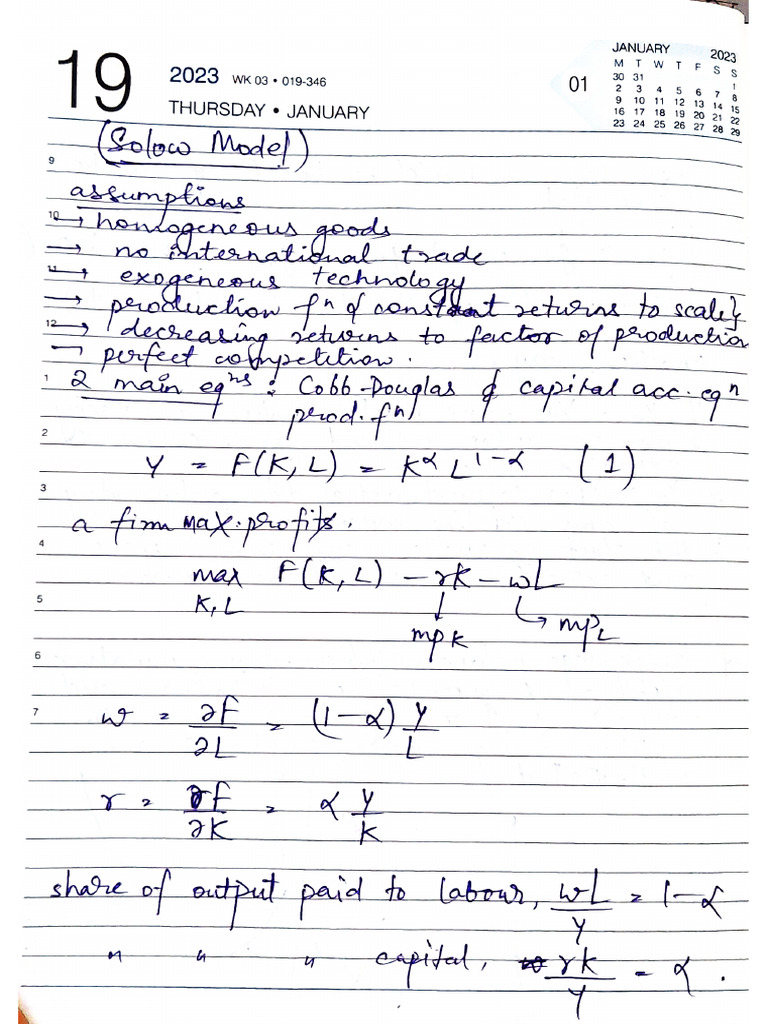 19
2023 WK 03 • 019-346
THURSDAY • JANUARY
01
JANUARY 2023
M T W T F S S
30 31 1
2 3 4 5 6 7 8
9 10 11 12 13 14 15
16 17 18 19 20 21 22
23 24 25 26 27 28 29
(Solow Model)
9
assumptions
10 → homogeneous goods
→ no international trade
11 → exogeneous technology
→ production fⁿ of constant returns to scale}
12 → decreasing returns to factor of production
→ perfect competition.
1 2 main eqⁿˢ : Cobb-Douglas & capital acc. eqⁿ
prod. fⁿ
2
Y = F(K, L) = K^α L^1-α (1)
3
a firm max. profits.
4
max F(K, L) - rK - wL
5 K, L
↓ mpK ↳ mpL
6
7 w = ∂F/∂L = (1-α) Y/L
r = ∂F/∂K = α Y/K
share of output paid to labour, wL/Y = 1-α
" " " capital, rK/Y = α.